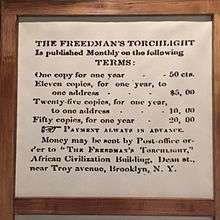 THE FREEDMAN'S TORCHLIGHT
Is published Monthly on the following
TERMS:
One copy for one year - - 50 cts.
Eleven copies, for one year, to
one address - - $5, 00
Twenty-five copies, for one year,
to one address - - 10, 00
Fifty copies, for one year - 20, 00
☞ PAYMENT ALWAYS IN ADVANCE.
Money may be sent by Post-office or-
der to "THE FREEDMAN'S TORCHLIGHT,"
African Civilization Building, Dean st.,
near Troy avenue, Brooklyn, N. Y.